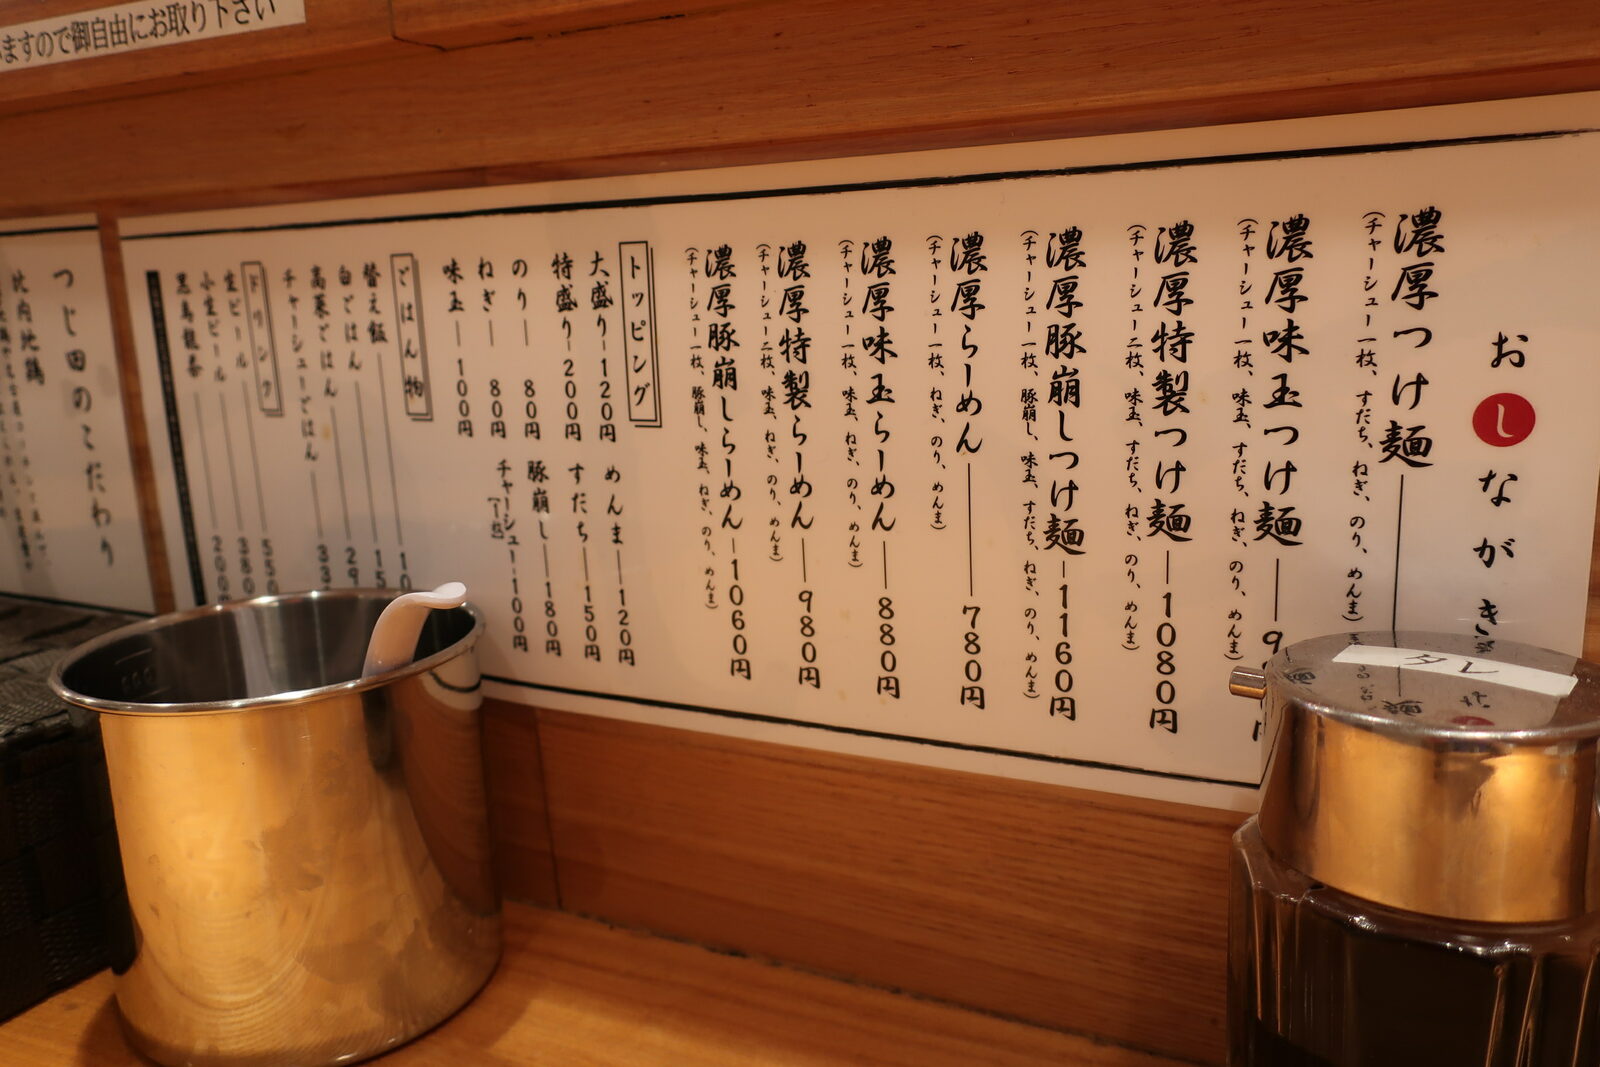 ますので御自由にお取り下さい
おしながき
濃厚つけ麺
(チャーシュー一枚、すだち、ねぎ、のり、めんま)
濃厚味玉つけ麺
(チャーシュー一枚、味玉、すだち、ねぎ、のり、めんま)
濃厚特製つけ麺 1080円
(チャーシュー二枚、味玉、すだち、ねぎ、のり、めんま)
濃厚豚崩しつけ麺 1160円
(チャーシュー一枚、豚崩し、味玉、すだち、ねぎ、のり、めんま)
濃厚らーめん 780円
(チャーシュー一枚、ねぎ、のり、めんま)
濃厚味玉らーめん 880円
(チャーシュー一枚、味玉、ねぎ、のり、めんま)
濃厚特製らーめん 980円
(チャーシュー二枚、味玉、ねぎ、のり、めんま)
濃厚豚崩しらーめん 1060円
(チャーシュー一枚、豚崩し、味玉、ねぎ、のり、めんま)
トッピング
大盛り 120円
めんま 120円
特盛り 200円
すだち 150円
のり 80円
豚崩し 180円
ねぎ 80円
チャーシュー(一枚) 100円
味玉 100円
ごはん物
替え飯
白ごはん
高菜ごはん
チャーシューごはん
ドリンク
生ビール 550
小生ビール 380
黒烏龍茶 200
つじ田のこだわり
比内地鶏
タレ